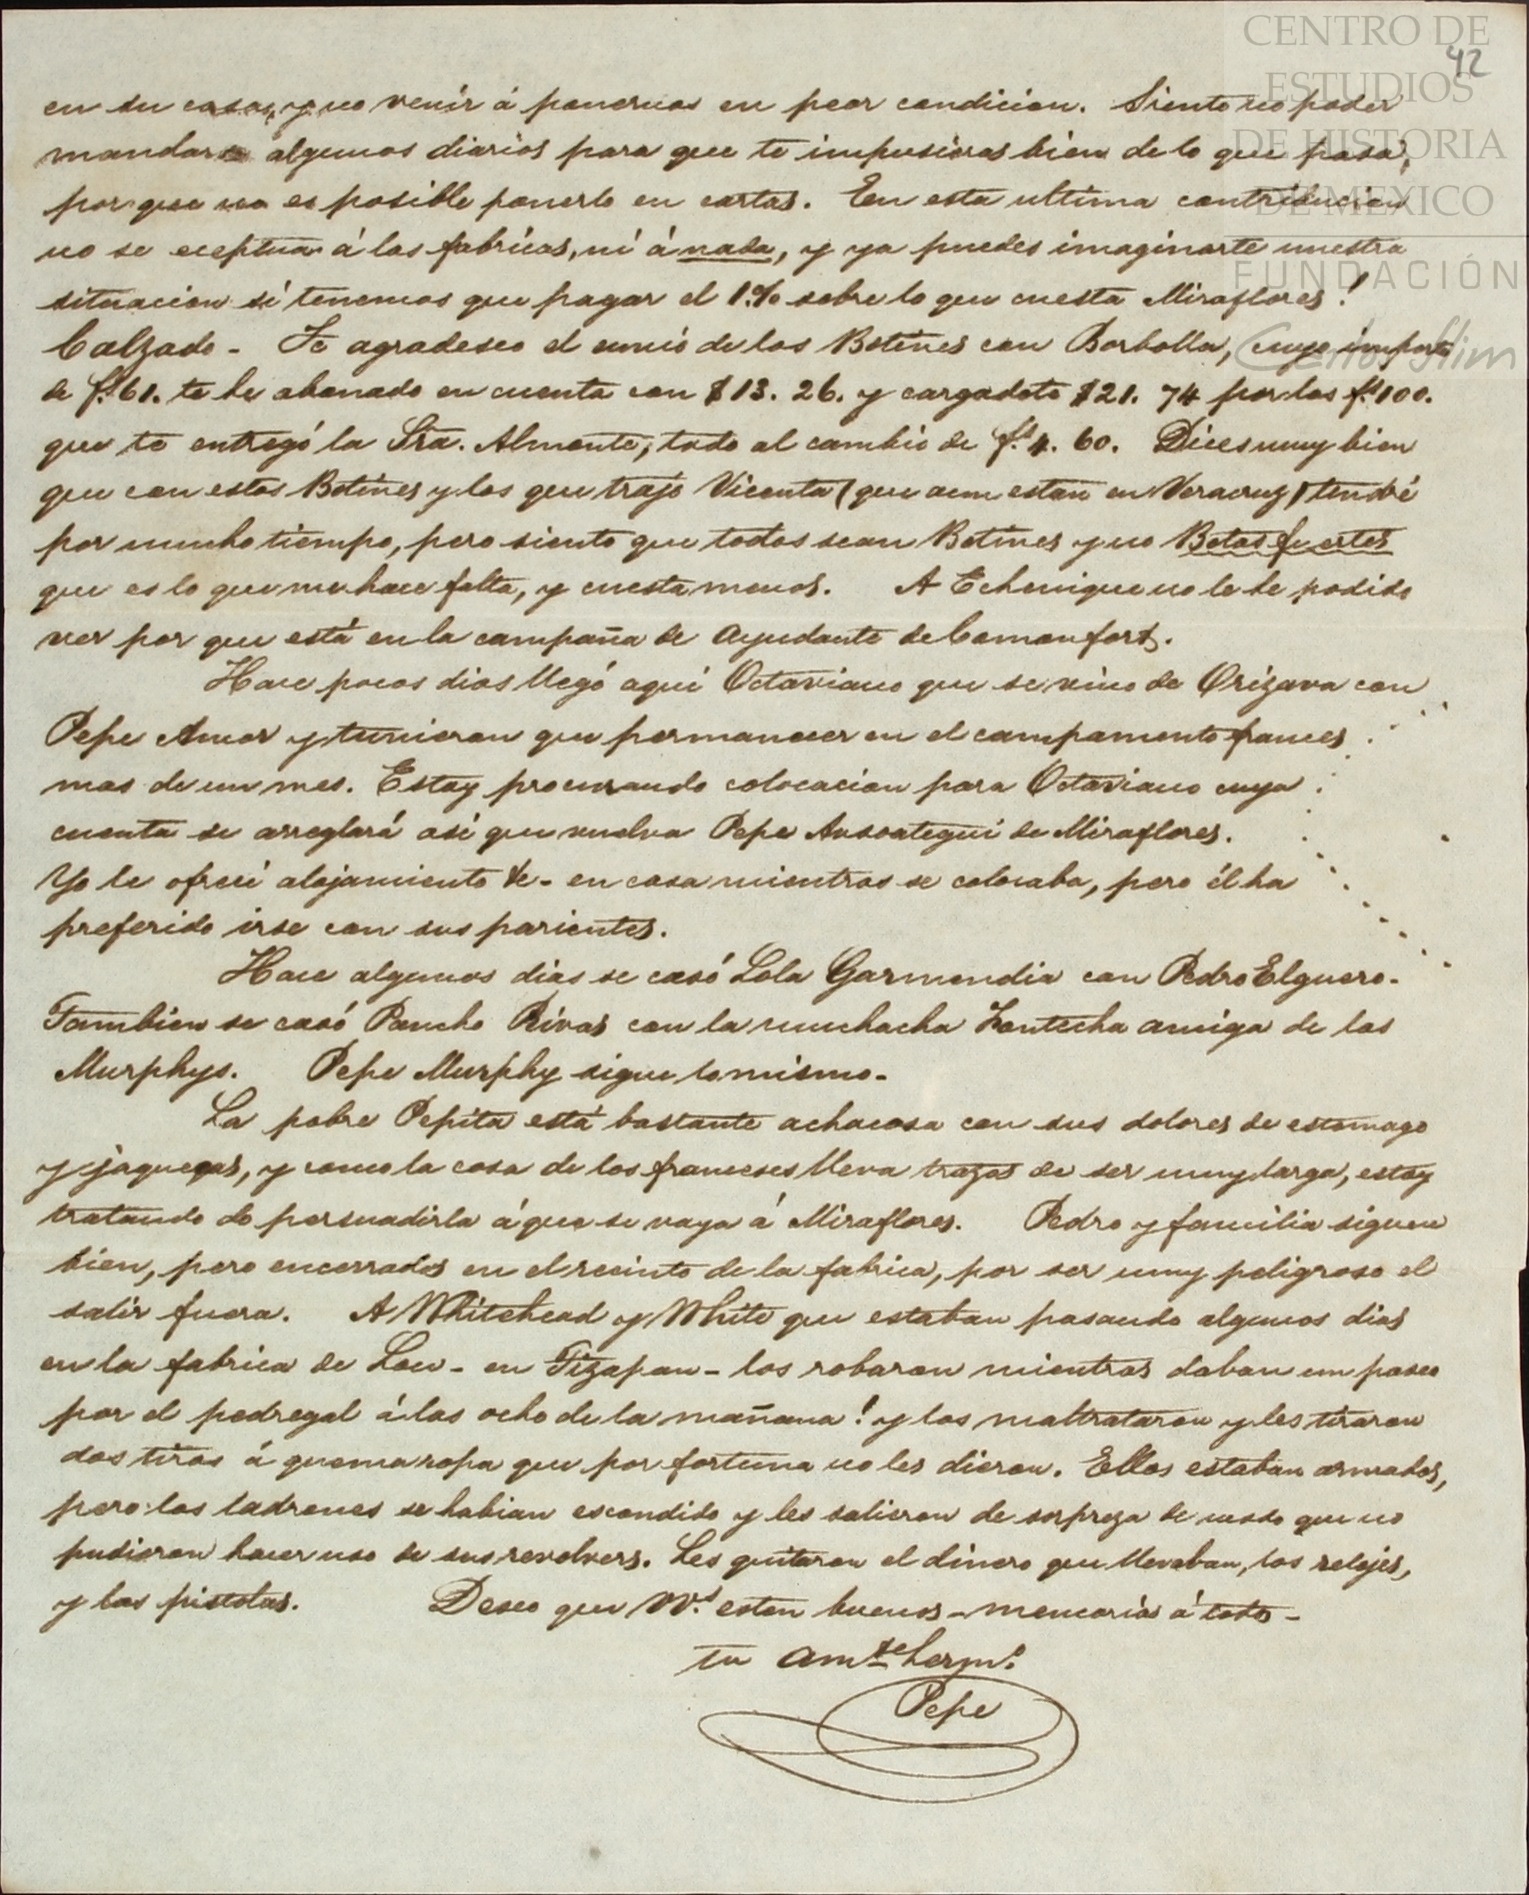 CENTRO DE
ESTUDIOS
DE HISTORIA
DE MÉXICO
FUNDACIÓN
Carlos Slim
42
en su casa, y no venir á ponernos en peor condicion. Siento no poder
mandar algunos diarios para que te impusieras bien de lo que pasa,
por que no es posible ponerlo en cartas. En esta ultima contribucion
no se eceptua á las fabricas, ni á nada, y ya puedes imaginarte nuestra
situacion si tenemos que pagar el 1.% sobre lo que cuesta Miraflores!
Calzado - Te agradesco el envió de los Botines con Borbolla, cuyo importe
de f.s 61. te he abonado en cuenta con $13. 26. y cargadote $21. 74 por los f.s 100.
que te entregó la Sra. Almonte, todo al cambio de f.s 4. 60. Dices muy bien
que con estos Botines y los que trajo Vicenta (que aun estan en Veracruz) tendré
por mucho tiempo, pero siento que todos sean Botines y no Botas fuertes
que es lo que me hace falta, y cuesta menos. A Echenique no le he podido
ver por que está en la campaña de Ayudante de Comonfort.
Hace pocos dias llegó aqui Octaviano que se vino de Orizava con
Pepe Amor y tuvieron que permanecer en el campamento frances
mas de un mes. Estoy procurando colocacion para Octaviano cuya
cuenta se arreglará asi que vuelva Pepe Ansoategui de Miraflores.
Yo le ofreci alojamiento &c - en casa mientras se colocaba, pero él ha
preferido irse con sus parientes.
Hace algunos dias se casó Lola Garmendia con Pedro Elguero -
Tambien se casó Pancho Rivas con la muchacha Fontecha amiga de las
Murphys. Pepe Murphy sigue lo mismo -
La pobre Pepita está bastante achacosa con sus dolores de estomago
y jaquecas, y como la cosa de los franceses lleva trazas de ser muy larga, estoy
tratando de persuadirla á que se vaya á Miraflores. Pedro y familia siguen
bien, pero encerrados en el recinto de la fabrica, por ser muy peligroso el
salir fuera. A Whitehead y White que estaban pasando algunos dias
en la fabrica de - en Tizapan - los robaron mientras daban un paseo
por el pedregal á las ocho de la mañana! y los maltrataron y les tiraron
dos tiros á quema ropa que por fortuna no les dieron. Ellos estaban armados,
pero los ladrones se habian escondido y les salieron de sorpreza de modo que no
pudieron hacer uso de sus revolvers. Les quitaron el dinero que llevaban, los relojes,
y las pistolas. Deseo que VV.s esten buenos - memorias á todos -
tu am.te herm.o
Pepe